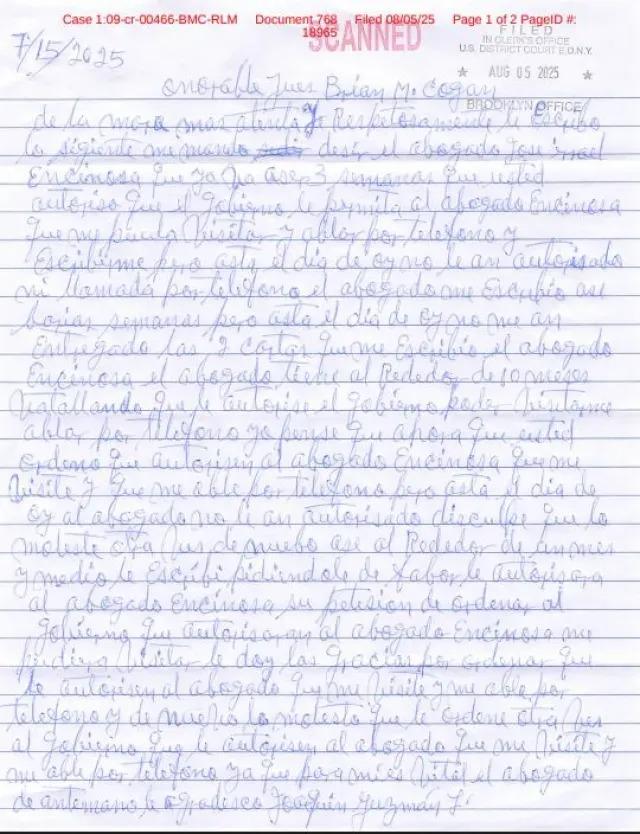 Case 1:09-cr-00466-BMC-RLM Document 768 Filed 08/05/25 Page 1 of 2 PageID #:
18965
SCANNED
FILED
IN CLERK'S OFFICE
U.S. DISTRICT COURT E.D.N.Y.
7/15/2025
★ AUG 05 2025 ★
onorable Jues Brian M. Cogan
BROOKLYN OFFICE
de la mora mas atenta y Respetosamente le Escribo
lo sigiente me mando desir el abogado Jose
Encinosa que ya va aser 3 semanas que usted
autoriso que el gobierno le permita al abogado Encinosa
que me pueda visitar y ablar por telefono y
Escribirme pero asta el dia de oy no le an autorisado
ni llamada por telefono el abogado me Escribio ase
barias semanas pero asta el dia de oy no me an
Entregado las 2 cartas que me Escribio el abogado
Encinosa el abogado tiene al Rededor de 10 meses
batallando que le autorise el gobierno poder visitarme
ablar por telefono yo pense que ahora que usted
ordeno que autorisen al abogado Encinosa que me
visite y que me able por telefono pero asta el dia de
oy al abogado no le an autorisado disculpe que lo
moleste otra bes de nuebo ase al Rededor de un mes
y medio le Escribi pidiendole de fabor le autorisara
al abogado Encinosa su petision de ordenar al
gobierno que autorisaran al abogado Encinosa me
pudiera visitar le doy las gracias por ordenar que
le autorisen al abogado que me visite y me able por
telefono y de nuebo lo molesto que le ordene otra bes
al gobierno que le autorisen al abogado que me visite y
me able por telefono ya que para mi es vital el abogado
de antemano le agradesco Joaquin Guzman L.